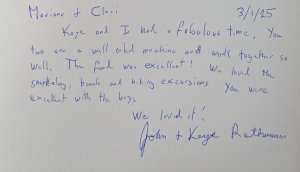 Mariann & Clari 3/1/15
Kaye and I had a fabulous time. You
two are a well oiled machine and work together so
well. The food was excellent! We loved the
snorkeling, beach and hiking excursions. You were
excellent with the boys.
We loved it!
John & Kaye